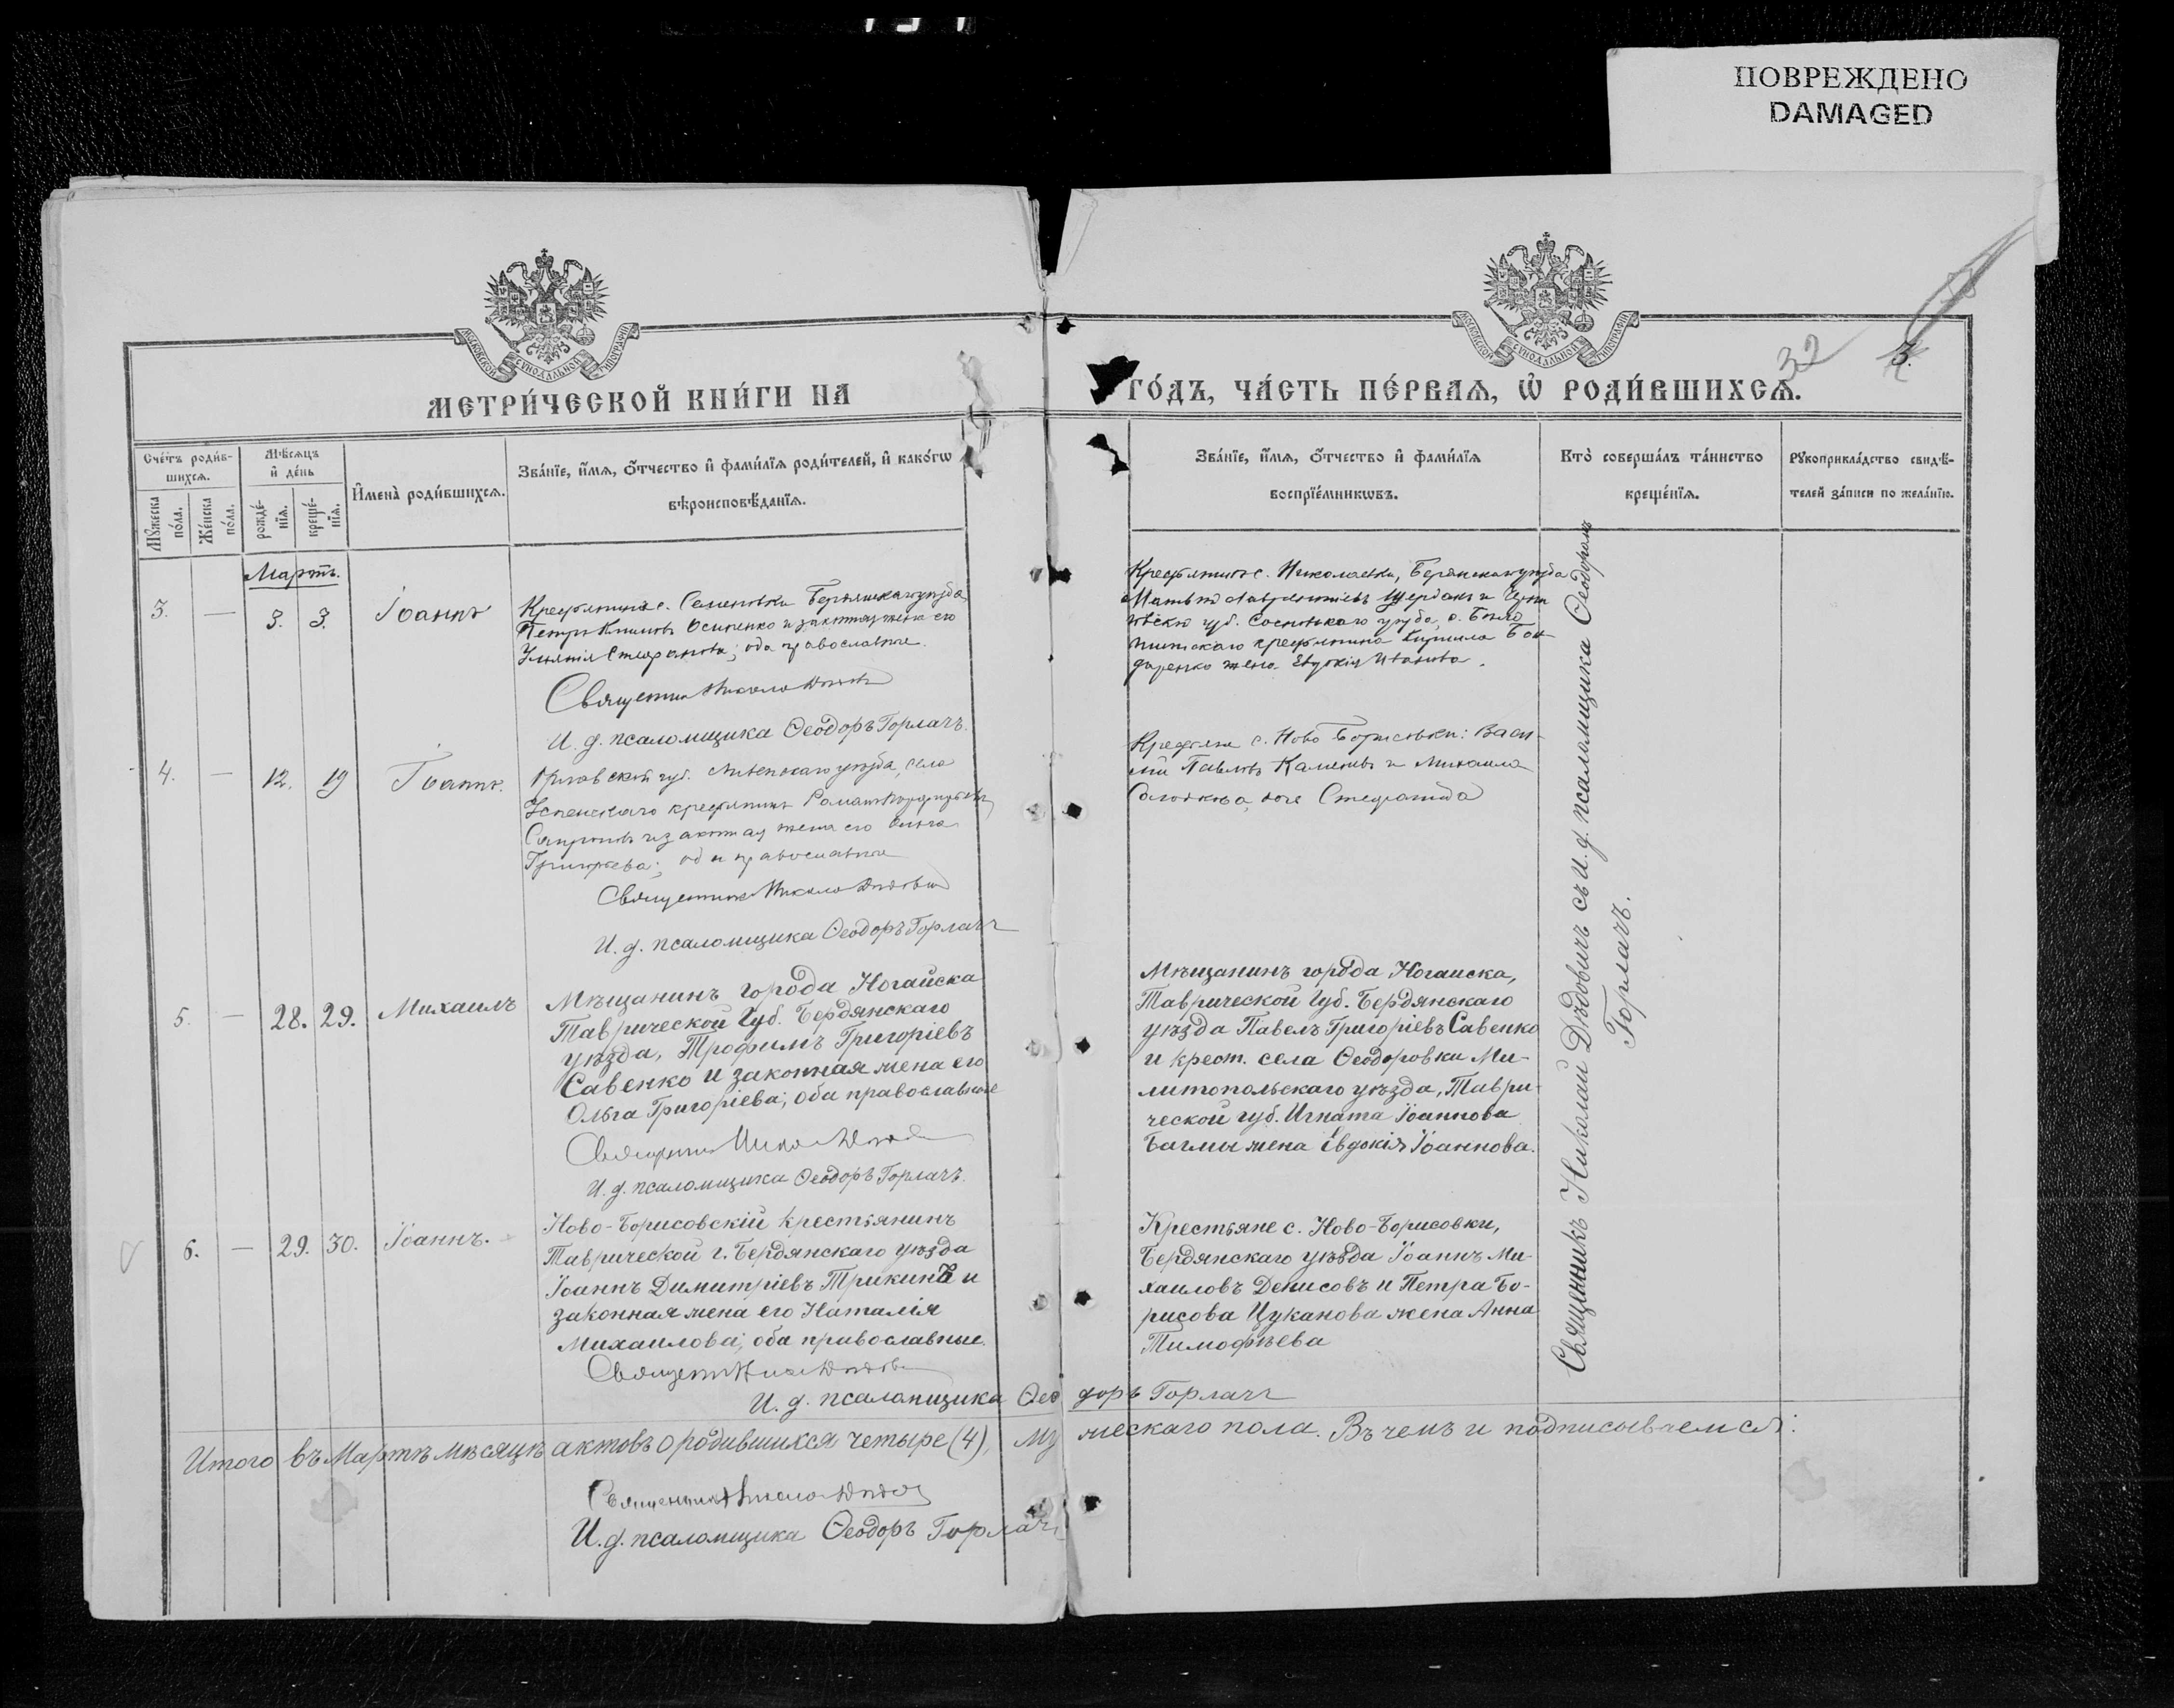 ПОВРЕЖДЕНО
DAMAGED
МОСКОВСКОЙ СѴНОДАЛЬНОЙ ТИПОГРАФІИ
МОСКОВСКОЙ СѴНОДАЛЬНОЙ ТИПОГРАФІИ
32
3.
МЕТРИ́ЧЕСКОЙ КНИ́ГИ НА
ГО́ДЪ, ЧА́СТЬ ПЕ́РВАЯ, Ѽ РОДИ́ВШИХСЯ.
Сче́тъ роди́в-
шихся.
Мѣ́сяцъ
и҆ де́нь
Мꙋ́жеска
по́ла.
Же́нска
по́ла.
рожде́-
нїя.
креще́-
нїя.
И҆мена̀ роди́вшихся.
Зва́нїе, и҆́мя, ѻ҆́тчество и҆ фами́лїя роди́телей, и҆ како́гѡ
вѣроисповѣ́данїя.
Зва́нїе, и҆́мя, ѻ҆́тчество и҆ фами́лїя
воспрїе́мникѡвъ.
Кто̀ соверша́лъ та́инство
креще́нїя.
Рꙋкоприкла́дство свидѣ́-
телей за́писи по жела́нїю.
Мартъ.
3. — 3. 3. Іоаннъ
Крестьянинъ с. Семеновки Бердянскаго уѣзда
Петръ Климовъ Осипенко и законная жена его
Стефанова; оба православные.
Священникъ Николай Дѣдовичъ
И. д. псаломщика Ѳеодоръ Горлачъ.
Крестьянинъ с. Николаевки, Бердянскаго уѣзда
Лаврентіевъ и
губ. Сосницкаго уѣзда, с.
крестьянина Кирилла Бон-
даренко жена Евдокія Иванова.
4. — 12. 19 Іоаннъ.
Орловской губ. Ливенскаго уѣзда, села
Успенскаго крестьянинъ Романъ
и законная жена его Ольга
Григорьева; оба православные
Священникъ Николай Дѣдовичъ
И. д. псаломщика Ѳеодоръ Горлачъ
Крестьяне с. Ново Борисовки: Васи-
лій Павловъ и Михаила
дочь Стефанида
5. — 28. 29. Михаилъ
Мѣщанинъ города Ногайска
Таврической Губ. Бердянскаго
уѣзда, Трофимъ Григоріевъ
Савенко и законная жена его
Ольга Григоріева; оба православные
Священникъ Николай Дѣдовичъ
И. д. псаломщика Ѳеодоръ Горлачъ.
Мѣщанинъ города Ногайска,
Таврической Губ. Бердянскаго
уѣзда Павелъ Григоріевъ Савенко
и крест. села Ѳеодоровки Ми-
литопольскаго уѣзда, Таври-
ческой губ. Игната Іоаннова
Баглы жена Евдокія Іоаннова.
6. — 29. 30. Іоаннъ.
Ново-Борисовскій крестьянинъ
Таврической г. Бердянскаго уѣзда
Іоаннъ Димитріевъ Трикинъ и
законная жена его Наталія
Михаилова; оба православные.
Священникъ Николай Дѣдовичъ
И. д. псаломщика Ѳеодоръ Горлачъ
Крестьяне с. Ново-Борисовки,
Бердянскаго уѣзда Іоаннъ Ми-
хаиловъ Денисовъ и Петра Бо-
рисова Цуканова жена Анна
Тимофѣева
Священникъ Николай Дѣдовичъ съ И. д. псаломщика Ѳеодоромъ
Горлачъ.
Итого въ Мартѣ мѣсяцѣ актовъ о родившихся четыре (4), мужескаго пола. Въ чемъ и подписываемся:
Священникъ Николай Дѣдовичъ
И. д. псаломщика Ѳеодоръ Горлачъ